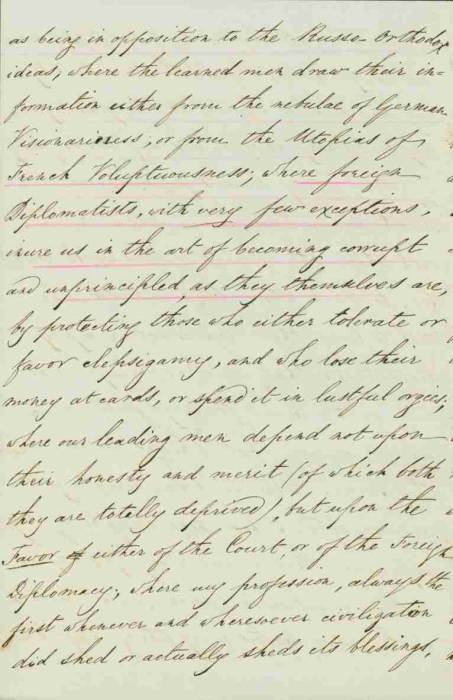 as being in opposition to the Russo-Orthodox
ideas; where the learned men draw their in=
formation either from the nebulae of German
Visionariness, or from the Utopias of
French Voluptuousness; where foreign
Diplomatists, with very few exceptions,
inure us in the art of becoming corrupt
and unprincipled, as they themselves are,
by protecting those who either tolerate or
favor clepsigamy, and who lose their
money at cards, or spend it in lustful orgies;
where our leading men depend not upon
their honesty and merit (of which both
they are totally deprived), but upon the
Favor of either of the Court, or of the Foreign
Diplomacy; where my profession, always the
first whenever and wheresoever civilization
did shed or actually sheds its blessings,